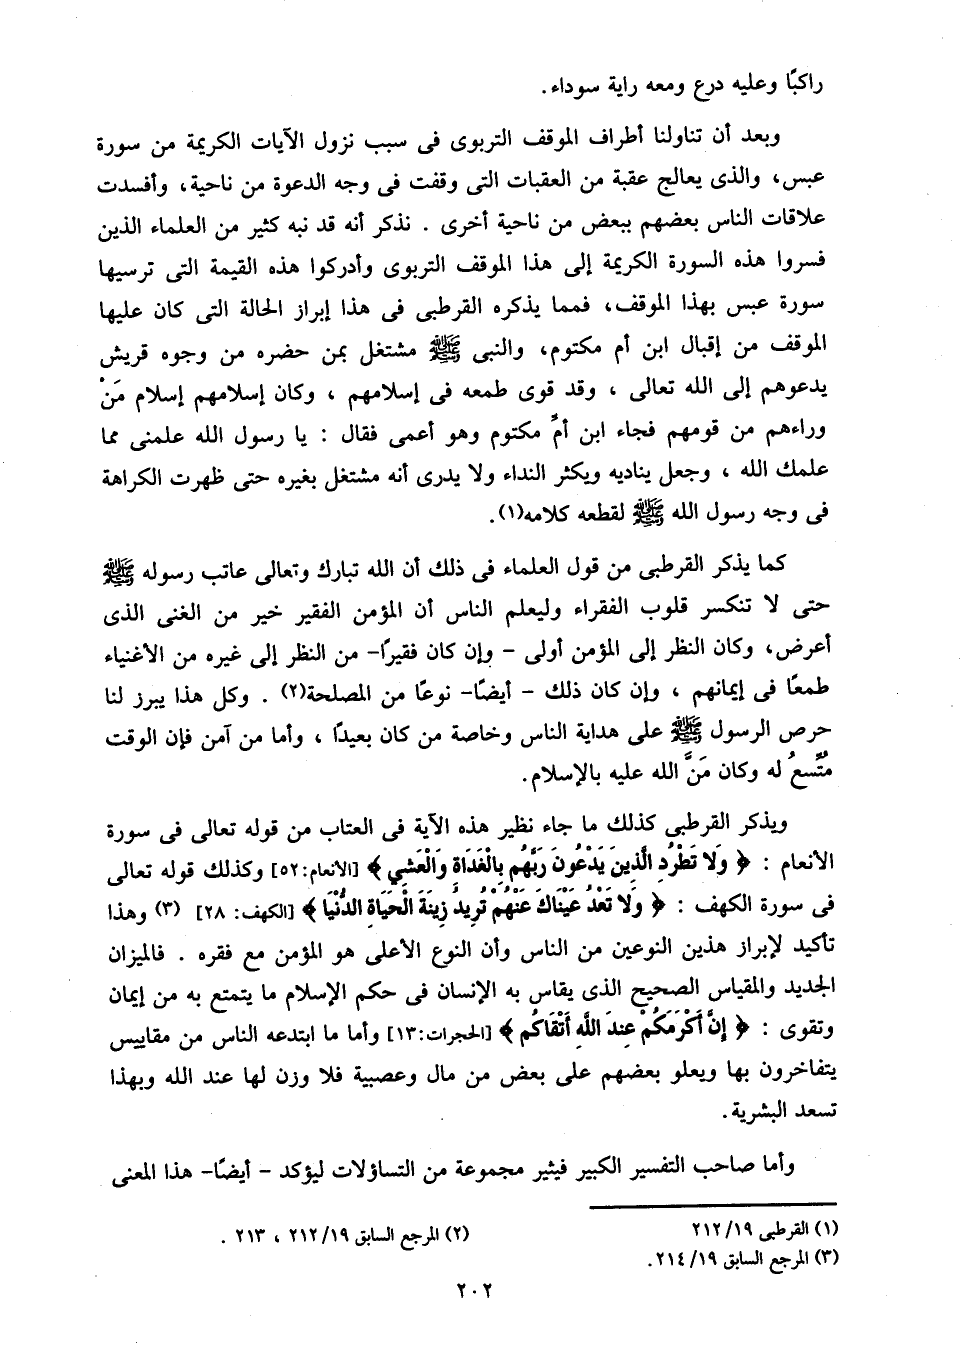 راكبًا وعليه درع ومعه راية سوداء.
وبعد أن تناولنا أطراف الموقف التربوى فى سبب نزول الآيات الكريمة من سورة
عبس، والذى يعالج عقبة من العقبات التى وقفت فى وجه الدعوة من ناحية، وأفسدت
علاقات الناس بعضهم ببعض من ناحية أخرى . نذكر أنه قد نبه كثير من العلماء الذين
فسروا هذه السورة الكريمة إلى هذا الموقف التربوى وأدركوا هذه القيمة التى ترسيها
سورة عبس بهذا الموقف، فمما يذكره القرطبى فى هذا إبراز الحالة التى كان عليها
الموقف من إقبال ابن أم مكتوم، والنبى ﷺ مشتغل بمن حضره من وجوه قريش
يدعوهم إلى الله تعالى ، وقد قوى طمعه فى إسلامهم ، وكان إسلامهم إسلام مَنْ
وراءهم من قومهم فجاء ابن أمِّ مكتوم وهو أعمى فقال : يا رسول الله علمنى مما
علمك الله ، وجعل يناديه ويكثر النداء ولا يدرى أنه مشتغل بغيره حتى ظهرت الكراهة
فى وجه رسول الله ﷺ لقطعه كلامه(١).
كما يذكر القرطبى من قول العلماء فى ذلك أن الله تبارك وتعالى عاتب رسوله ﷺ
حتى لا تنكسر قلوب الفقراء وليعلم الناس أن المؤمن الفقير خير من الغنى الذى
أعرض، وكان النظر إلى المؤمن أولى - وإن كان فقيرًا- من النظر إلى غيره من الأغنياء
طمعًا فى إيمانهم ، وإن كان ذلك - أيضًا- نوعًا من المصلحة(٢) . وكل هذا يبرز لنا
حرص الرسول ﷺ على هداية الناس وخاصة من كان بعيدًا ، وأما من آمن فإن الوقت
مُتَّسعُ له وكان مَنَّ الله عليه بالإسلام.
ويذكر القرطبى كذلك ما جاء نظير هذه الآية فى العتاب من قوله تعالى فى سورة
الأنعام : ﴿ وَلا تَطْرُدِ الَّذِينَ يَدْعُونَ رَبَّهُم بِالْغَدَاةِ وَالْعَشِيِ ﴾ [الأنعام:٥٢] وكذلك قوله تعالى
فى سورة الكهف : ﴿ وَلا تَعْدُ عَيْنَاكَ عَنْهُمْ تُرِيدُ زِينَةَ الْحَيَاةِ الدُّنْيَا ﴾ [الكهف: ٢٨] (٣) وهذا
تأكيد لإبراز هذين النوعين من الناس وأن النوع الأعلى هو المؤمن مع فقره . فالميزان
الجديد والمقياس الصحيح الذى يقاس به الإنسان فى حكم الإسلام ما يتمتع به من إيمان
وتقوى : ﴿ إِنَّ أَكْرَمَكُمْ عِندَ اللَّهِ أَتْقَاكُمْ ﴾ [الحجرات:١٣] وأما ما ابتدعه الناس من مقاييس
يتفاخرون بها ويعلو بعضهم على بعض من مال وعصبية فلا وزن لها عند الله وبهذا
تسعد البشرية.
وأما صاحب التفسير الكبير فيثير مجموعة من التساؤلات ليؤكد - أيضًا- هذا المعنى
(١) القرطبى ٢١٢/١٩
(٢) المرجع السابق ٢١٢/١٩ ، ٢١٣ .
(٣) المرجع السابق ٢١٤/١٩.
٢٠٢